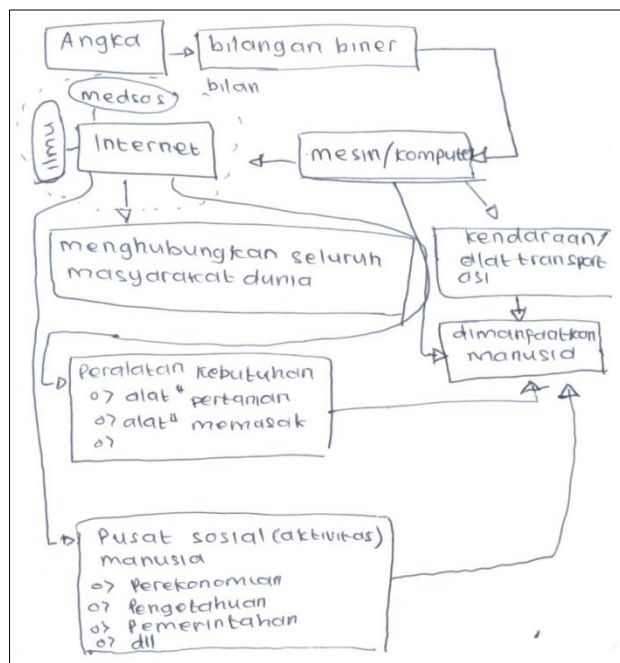 Angka
bilangan biner
medsos
bilan
Ilmu
Internet
mesin/kompute
menghubungkan seluruh
masyarakat dunia
kendaraan/
alat transport
asi
dimanfaatkan
manusia
Peralatan kebutuhan
o> alat" pertaman
o> alat" memasak
o>
Pusat sosial (aktivitas)
manusia
o> Perekonomian
o> Pengetahuan
o> Pemerintahan
o> dll